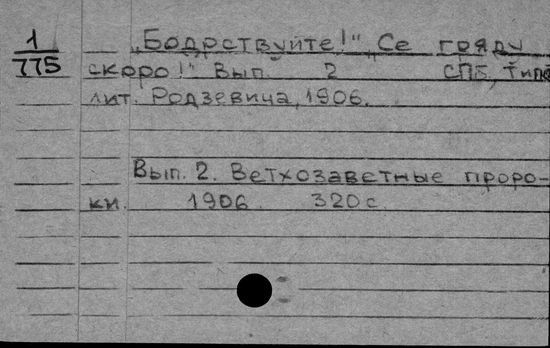 1 „Бодрствуйте!" „Се гряду
775 скоро!" Вып. 2 СПБ, Типо
лит. Родзевича, 1906.
Вып. 2. Ветхозаветные проро-
ки. 1906. 320 с.